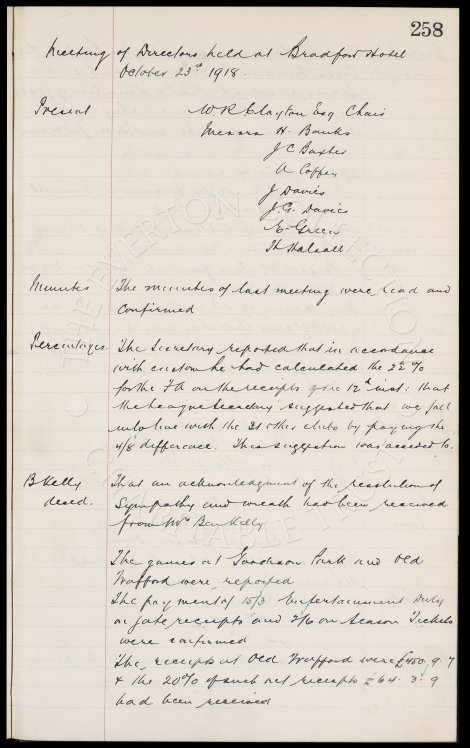 258
Meeting of Directors held at Bradford Hotel
October 23rd 1918.
Present W R Clayton Esq Chair
Messrs H. Banks
J C Baxter
A Coffey
J Davies
J. G. Davies
E. Green
H Halsall
Minutes The minutes of last meeting were read and
confirmed
Percentages. The Secretary reported that in accordance
with custom he had calculated the 2½%
for the F A on the receipts of the 12th inst: that
the League Secretary suggested that we fall
into line with the 21 other clubs by paying the
4/8 difference. This suggestion was acceded to.
B Kelly decsd. That an acknowledgment of the resolution of
Sympathy and wreath had been received
from Mrs Ben Kelly
The games at Goodison Park and Old
Trafford were reported
The payment of 15/3 Entertainment Duty
on gate receipts and 2/6 on Season Tickets
were confirmed
The receipts at Old Trafford were £450. 9. 7
& the 20% of such net receipts = 64. 3. 9
had been received
THE EVERTON COLLECTION
CHARITABLE TRUST